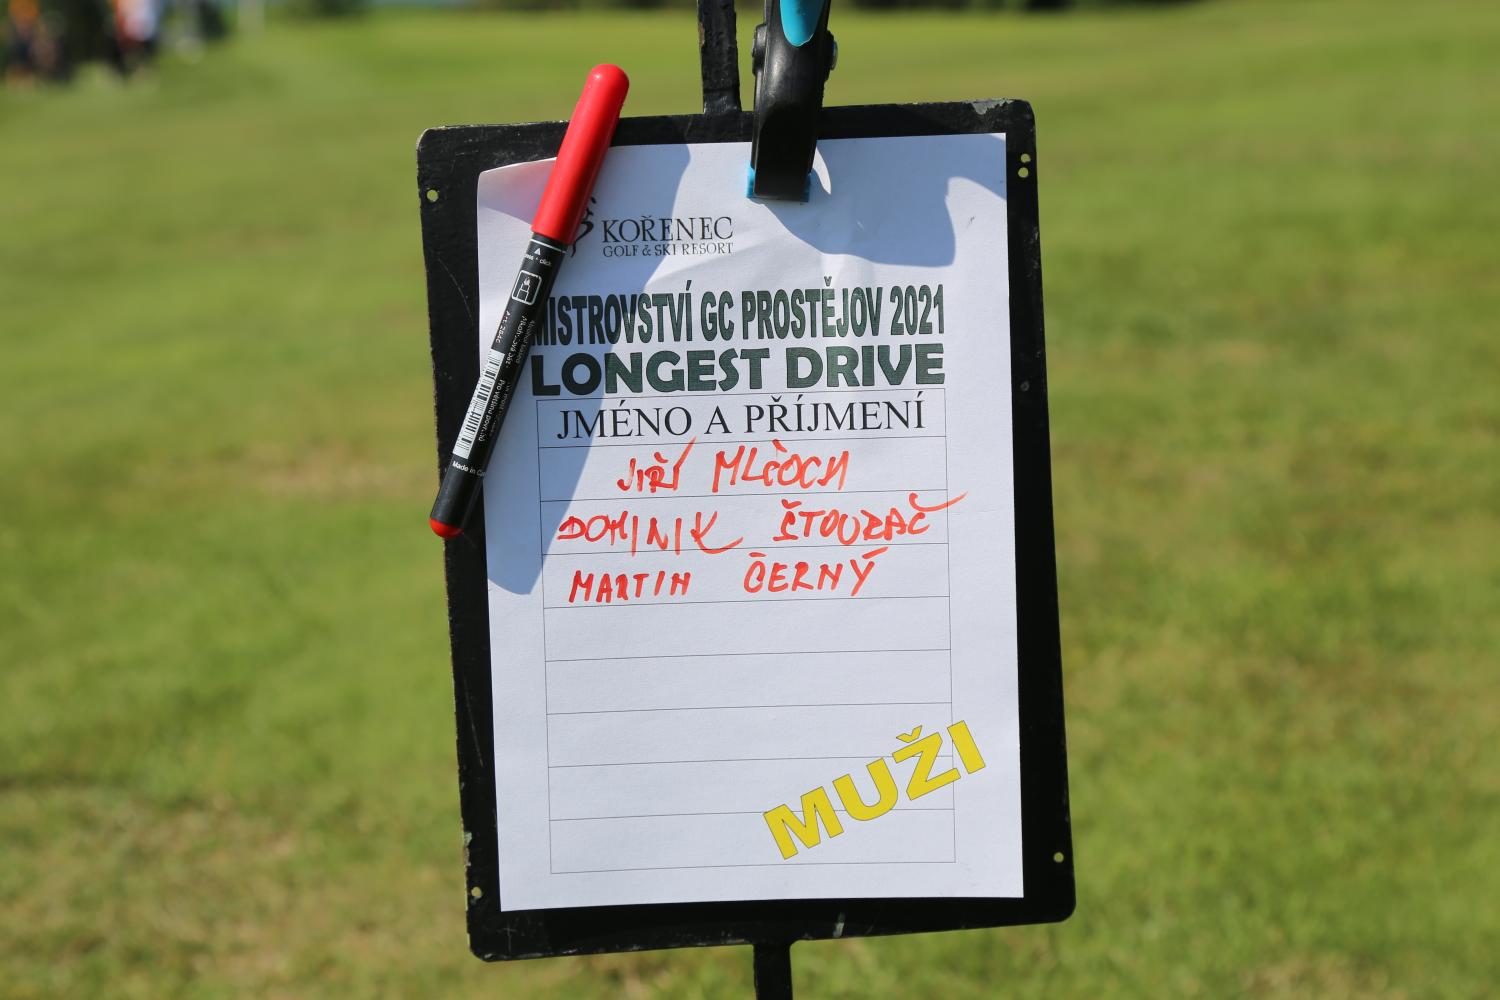 KOŘENEC
GOLF & SKI RESORT
MISTROVSTVÍ GC PROSTĚJOV 2021
LONGEST DRIVE
JMÉNO A PŘÍJMENÍ
JIŘÍ MLČOCH
DOMINIK ŠTOURAČ
MARTIN ČERNÝ
MUŽI
Made in